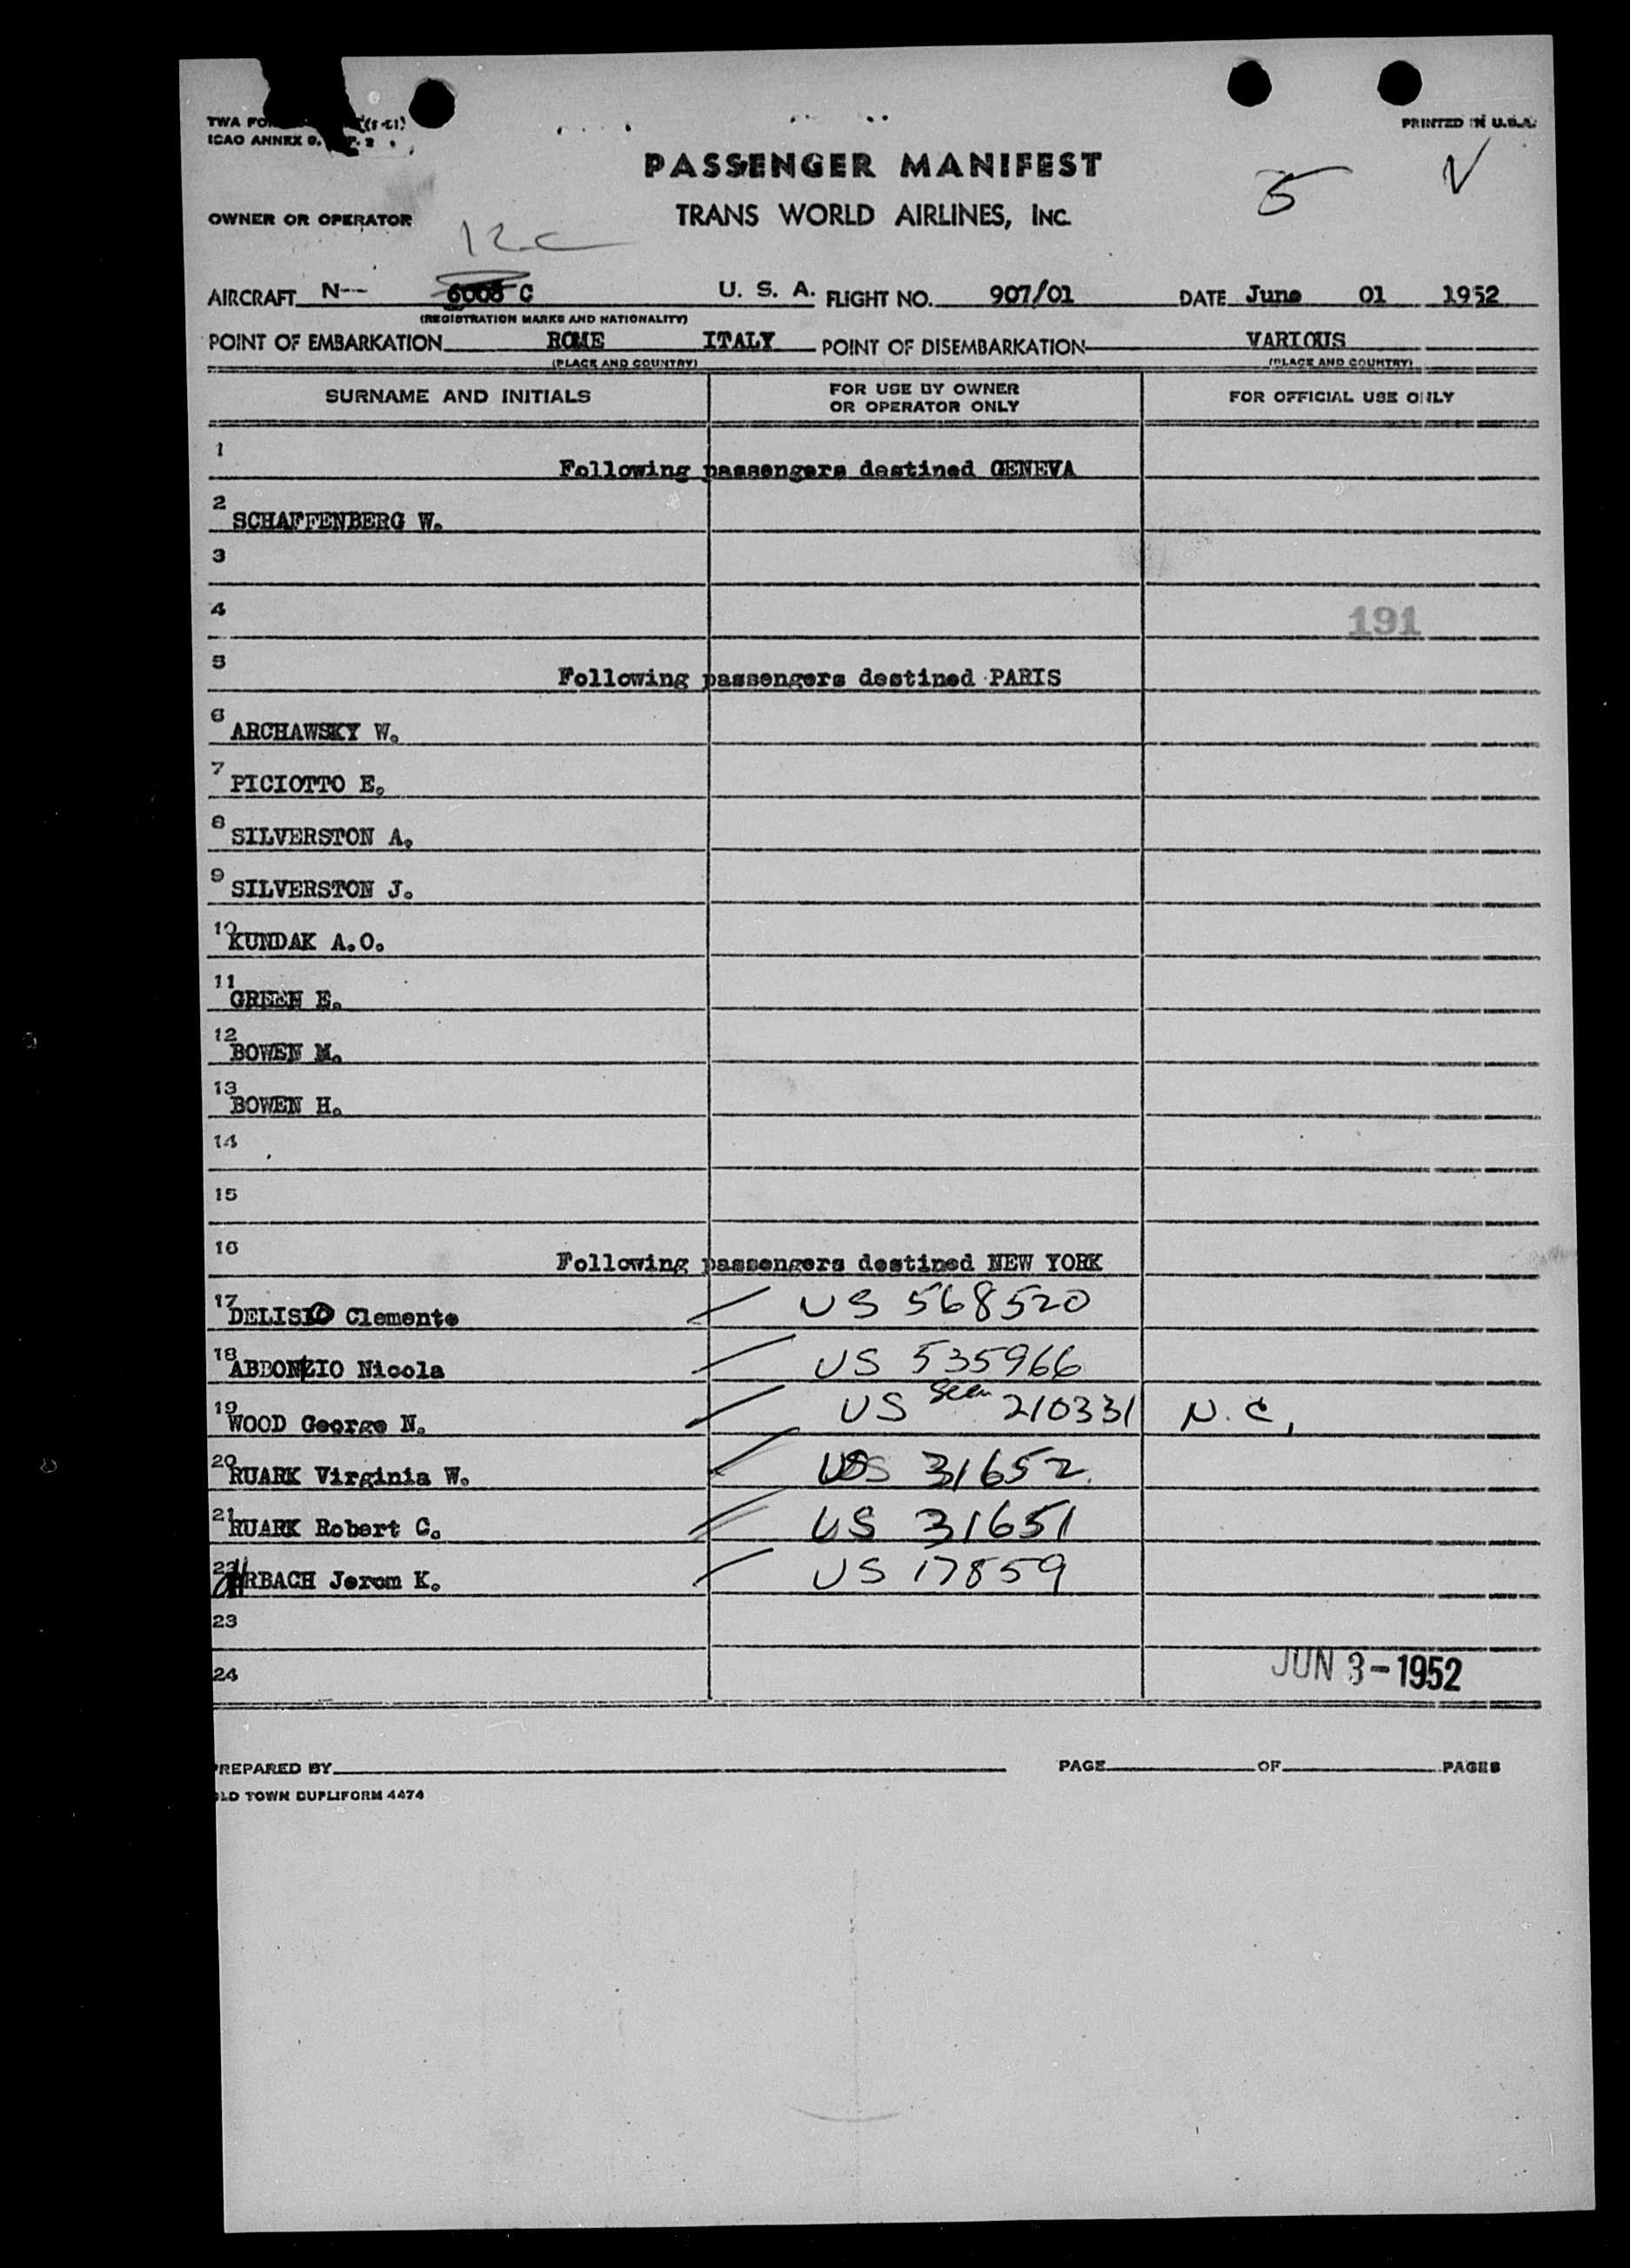 TWA FO (5-51)
ICAO ANNEX 9, P. 2
PRINTED IN U.S.A.
PASSENGER MANIFEST
5
OWNER OR OPERATOR
TRANS WORLD AIRLINES, INC.
12C
AIRCRAFT N-- C U. S. A. FLIGHT NO. 907/01 DATE June 01 1952
(REGISTRATION MARKS AND NATIONALITY)
POINT OF EMBARKATION ROME ITALY POINT OF DISEMBARKATION VARIOUS
(PLACE AND COUNTRY) (PLACE AND COUNTRY)
SURNAME AND INITIALS FOR USE BY OWNER OR OPERATOR ONLY FOR OFFICIAL USE ONLY
1 Following passengers destined GENEVA
2 SCHAFFENBERG W.
3
4 191
5 Following passengers destined PARIS
6 ARCHAWSKY W.
7 PICIOTTO E.
8 SILVERSTON A.
9 SILVERSTON J.
10 KUNDAK A.O.
11 GREEN E.
12 BOWEN M.
13 BOWEN H.
14
15
16 Following passengers destined NEW YORK
17 DELISIO Clemente US 568520
18 Nicola US 535966
19 WOOD George N. US Seen 210331 N.C.
20 RUARK Virginia W. US 31652
21 RUARK Robert C. US 31651
22 Jerom K. US 17859
23
24 JUN 3-1952
PREPARED BY PAGE OF PAGES
OLD TOWN DUPLIFORM 4474